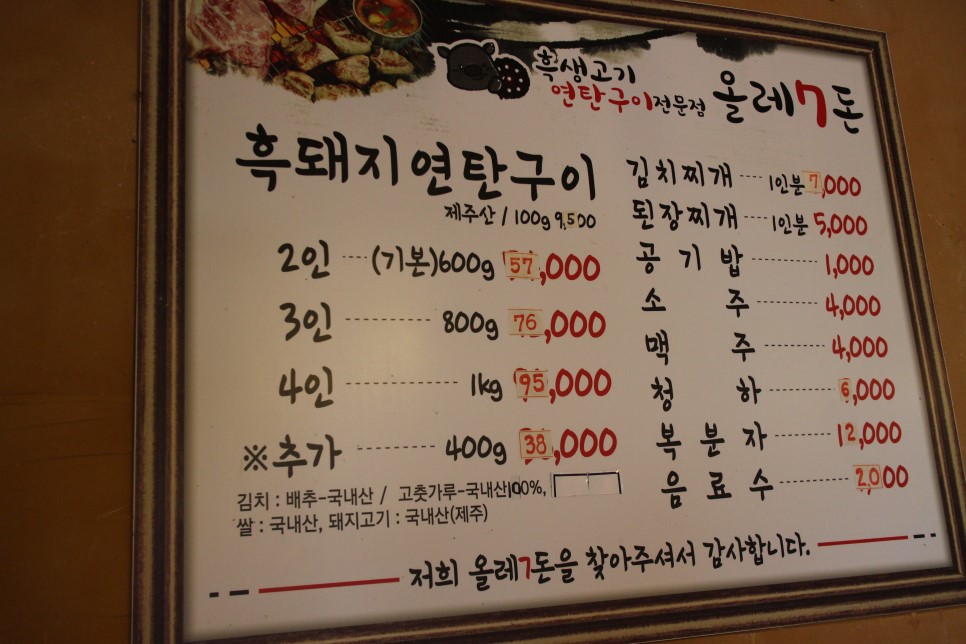 흑생고기
연탄구이전문점 올레7돈
흑돼지연탄구이
제주산 / 100g 9,500
2인 ---- (기본)600g 57,000
3인 -------- 800g 76,000
4인 ------------ 1kg 95,000
※추가 -------- 400g 38,000
김치 : 배추-국내산 / 고춧가루-국내산100%,
쌀 : 국내산, 돼지고기 : 국내산(제주)
김치찌개 ---- 1인분 7,000
된장찌개 ---- 1인분 5,000
공기밥 -------- 1,000
소주 -------- 4,000
맥주 -------- 4,000
청하 -------- 6,000
복분자 ------ 12,000
음료수 -------- 2,000
저희 올레7돈을 찾아주셔서 감사합니다.